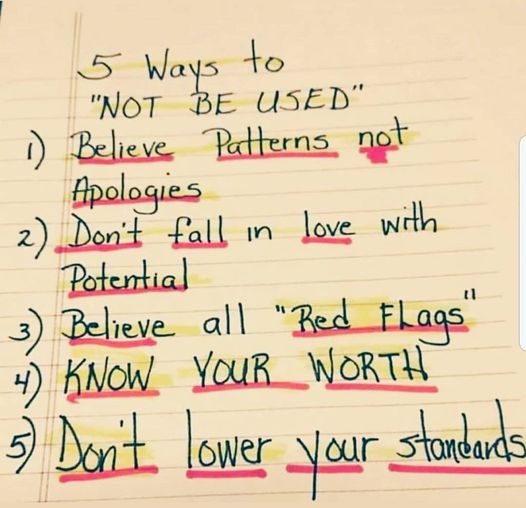 5 Ways to
"NOT BE USED"
1) Believe Patterns not
Apologies
2) Don't fall in love with
Potential
3) Believe all "Red FLags"
4) KNOW YOUR WORTH
5) Don't lower your standards